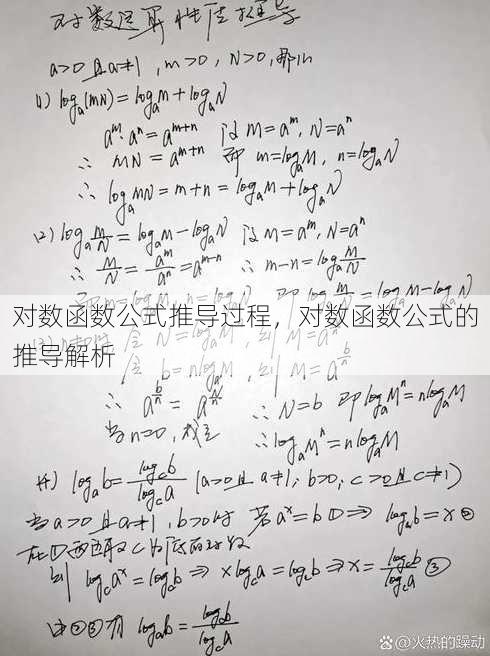 对数运算性质推导
a>0且a≠1,m>0,N>0,那么
(1) logₐ(MN)=logₐM+logₐN
aᵐ·aⁿ=aᵐ⁺ⁿ 设M=aᵐ,N=aⁿ
∴ MN=aᵐ⁺ⁿ 即 m=logₐM, n=logₐN
∴ logₐMN=m+n=logₐM+logₐN
(2) logₐ M/N=logₐM-logₐN 设M=aᵐ,N=aⁿ
∴ M/N=aᵐ/aⁿ=aᵐ⁻ⁿ ∴ m-n=logₐ M/N
对数函数公式推导过程，对数函数公式的
推导解析
∴ N=b 即logₐMⁿ=nlogₐM
当n=0,
∴logₐMⁿ=nlogₐM
(4) logₐb=log_c b/log_c a (a>0且a≠1; b>0; c>0且c≠1)
当a>0且a≠1,b>0时 若aˣ=b①⇒ logₐb=x②
则 log_c aˣ=log_c b⇒xlog_c a=log_c b⇒x=log_c b/log_c a ③
由②③有 logₐb=log_c b/log_c a
@火热的躁动